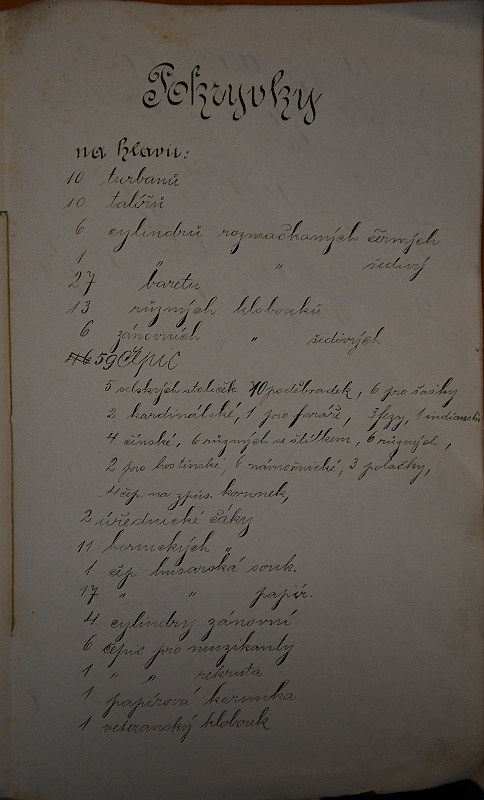 Pokryvky
na hlavu:
10 turbanů
10 talířů
6 cylindrů rozmačkaných černých
1 " " šedivý
27 baretu
13 různých klobouků
6 zánovních " šedivých
59 Čepic
5 selských stoliček 10 poděbradek, 6 pro šašky
2 kardinálské, 1 pro faráře, 3 fezy, 1 indiánská
4 čínské, 6 různých se štítkem, 6 různých,
2 pro hostinské, 6 námořnické, 3 polačky,
4 čep. na způs. korunek,
2 úřednické čáky
11 hornických "
1 čep. husarská souk.
17 " " papír.
4 cylindry zánovní
6 čepic pro muzikanty
1 " " rekruta
1 papírová korunka
1 veteranský klobouk